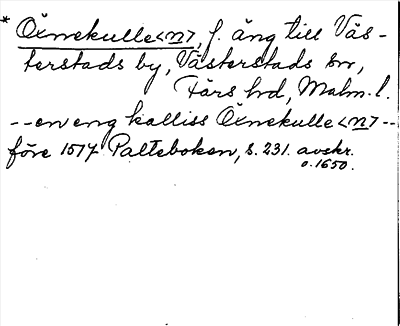 * Öxnekulle<n>, f. äng till Väs-
terstads by, Västerstads sn,
Färs hd, Malm. l.
-- en eng kalliss Öxnekulle <n> --
före 1517 Palteboken, s. 231. avskr.
o. 1650.